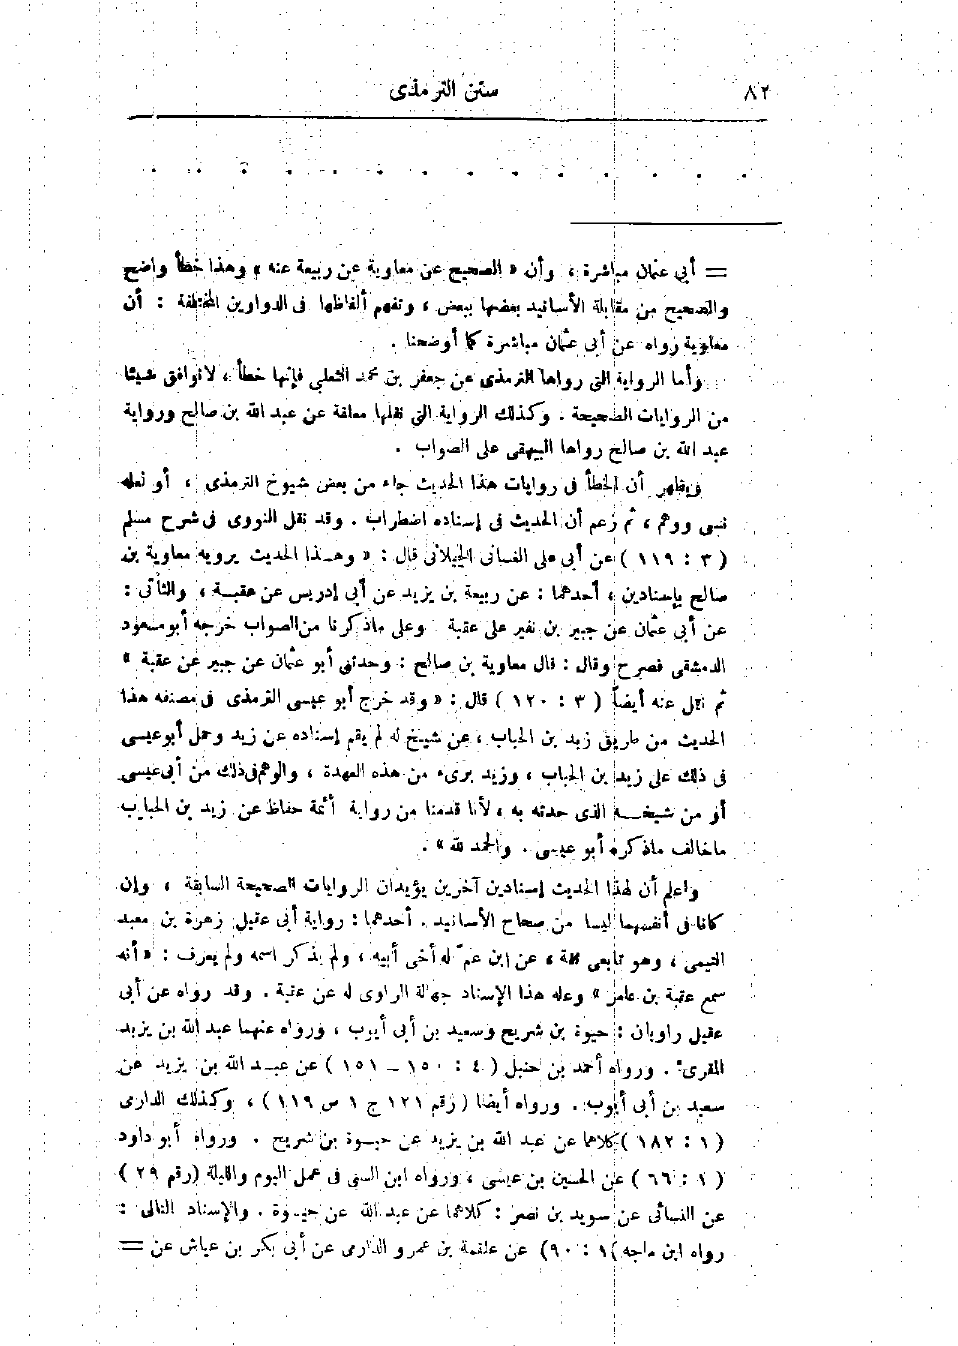 ٨٢
سنن الترمذى
= أبي عثمان مباشرة ، وأن « الصحيح عن معاوية عن ربيعة عنه » وهذا خطأ واضح
والصحيح من مقابلة الأسانيد بعضها ببعض ، وتفهم ألفاظها فى الدواوين المختلفة : أن
معاوية رواه عن أبى عثمان مباشرة كما أوضحنا .
وأما الرواية التى رواها الترمذى عن جعفر بن محمد الثعلبى فإنها خطأ ، لاتوافق شيئا
من الروايات الصحيحة . وكذلك الرواية التى نقلها معلقة عن عبد الله بن صالح ورواية
عبد الله بن صالح رواها البيهقى على الصواب .
ويظهر أن الخطأ فى روايات هذا الحديث جاء من بعض شيوخ الترمذى ، أو لعله
نسى ووهم ، ثم زعم أن الحديث فى إسناده اضطراب . وقد نقل النووى فى شرح مسلم
( ٣ : ١١٩ ) عن أبى على الغسانى الجيلانى قال : « وهذا الحديث يرويه معاوية بن
صالح بإسنادين ، أحدهما : عن ربيعة بن يزيد عن أبى إدريس عن عقبة ، والثانى :
عن أبى عثمان عن جبير بن نفير على عقبة وعلى ماذكرنا من الصواب خرجه أبو مسعود
الدمشقى فصرح وقال : قال معاوية بن صالح : وحدثنى أبو عثمان عن جبير عن عقبة »
ثم نقل عنه أيضاً ( ٣ : ١٢٠ ) قال : « وقد خرج أبو عيسى الترمذى فى مصنفه هذا
الحديث من طريق زيد بن الحباب ، عن شيخ له لم يقم إسناده عن زيد وحمل أبو عيسى
فى ذلك على زيد بن الحباب ، وزيد برىء من هذه العهدة ، والوهم فى ذلك من أبى عيسى
أو من شيخه الذى حدثه به ، لأنا قدمنا من رواية أئمة حفاظ عن زيد بن الحباب
ماخالف ماذكره أبو عيسى . والحمد لله » .
واعلم أن لهذا الحديث إسنادين آخرين يؤيدان الروايات الصحيحة السابقة ، وإن
كانا فى أنفسهما ليسا من صحاح الأسانيد . أحدهما : رواية أبى عقيل زهرة بن معبد
التيمى ، وهو تابعى ثقة ، عن ابن عمّ له أخى أبيه ، ولم يذكر اسمه ولم يعرف : « أنه
سمع عقبة بن عامر » وعلة هذا الإسناد جهالة الراوى له عن عقبة . وقد رواه عن أبى
عقيل راويان : حيوة بن شريح وسعيد بن أبى أيوب ، ورواه عنهما عبد الله بن يزيد
المقرئ . ورواه أحمد بن حنبل ( ٤ : ١٥٠ ــ ١٥١ ) عن عبد الله بن يزيد عن
سعيد بن أبى أيوب . ورواه أيضا ( رقم ١٢١ ج ١ ص ١١٩ ) ، وكذلك الدارى
( ١ : ١٨٢ ) كلاهما عن عبد الله بن يزيد عن حيوة بن شريح . ورواه أبو داود
( ١ : ٦٦ ) عن الحسين بن عيسى ، ورواه ابن السنى فى عمل اليوم والليلة (رقم ٢٩ )
عن النسائى عن سويد بن نصر : كلاهما عن عبد الله عن حيوة . والإسناد الثانى :
رواه ابن ماجه )١ : ٩٠) عن علقمة بن عمرو الدارمى عن أبى بكر بن عياش عن =